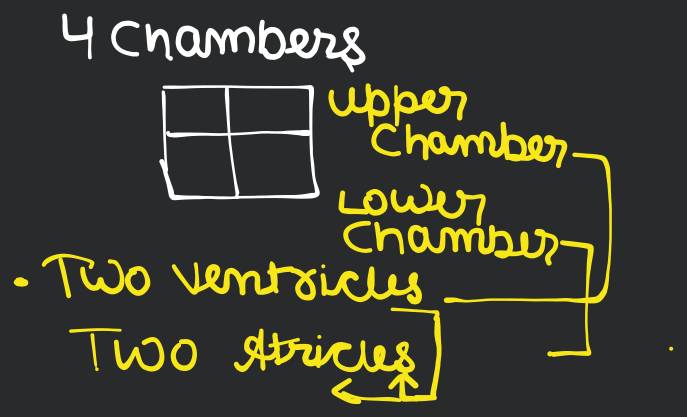 4 Chambers
Upper
Chamber
Lower
Chamber
• Two Ventricles
Two Atricles